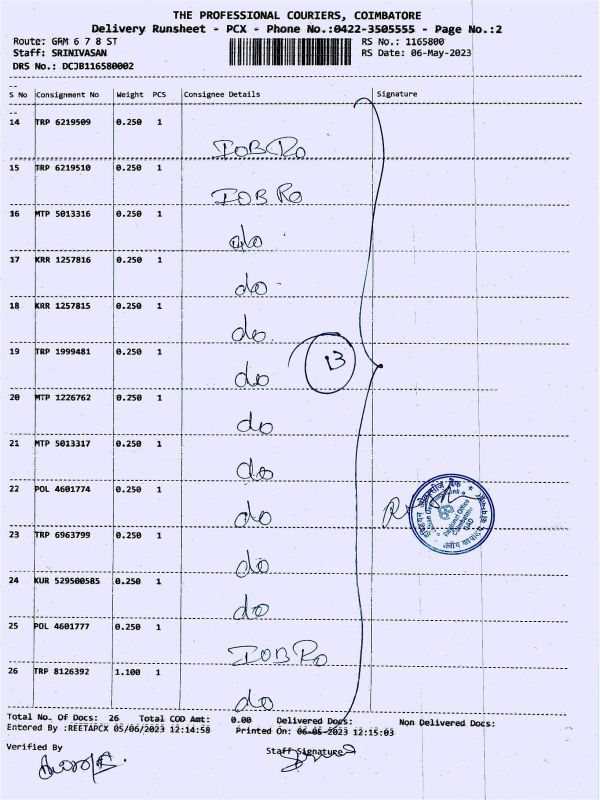 THE PROFESSIONAL COURIERS, COIMBATORE
Delivery Runsheet - PCX - Phone No.:0422-3505555 - Page No.:2
Route: GRM 6 7 8 ST RS No.: 1165800
Staff: SRINIVASAN RS Date: 06-May-2023
DRS No.: DCJB116580002
--
S No Consignment No Weight PCS Consignee Details Signature
--
14 TRP 6219509 0.250 1
IOB RO
15 TRP 6219510 0.250 1
IOB RO
16 MTP 5013316 0.250 1
do
17 KRR 1257816 0.250 1
do
18 KRR 1257815 0.250 1
do
19 TRP 1999481 0.250 1
do
13
20 MTP 1226762 0.250 1
do
21 MTP 5013317 0.250 1
do
22 POL 4601774 0.250 1
do
23 TRP 6963799 0.250 1
do
24 KUR 529500585 0.250 1
do
25 POL 4601777 0.250 1
IOB RO
26 TRP 8126392 1.100 1
do
Total No. Of Docs: 26 Total COD Amt: 0.00 Delivered Docs: Non Delivered Docs:
Entered By :REETAPCX 05/06/2023 12:14:58 Printed On: 06-05-2023 12:15:03
Verified By Staff Signature